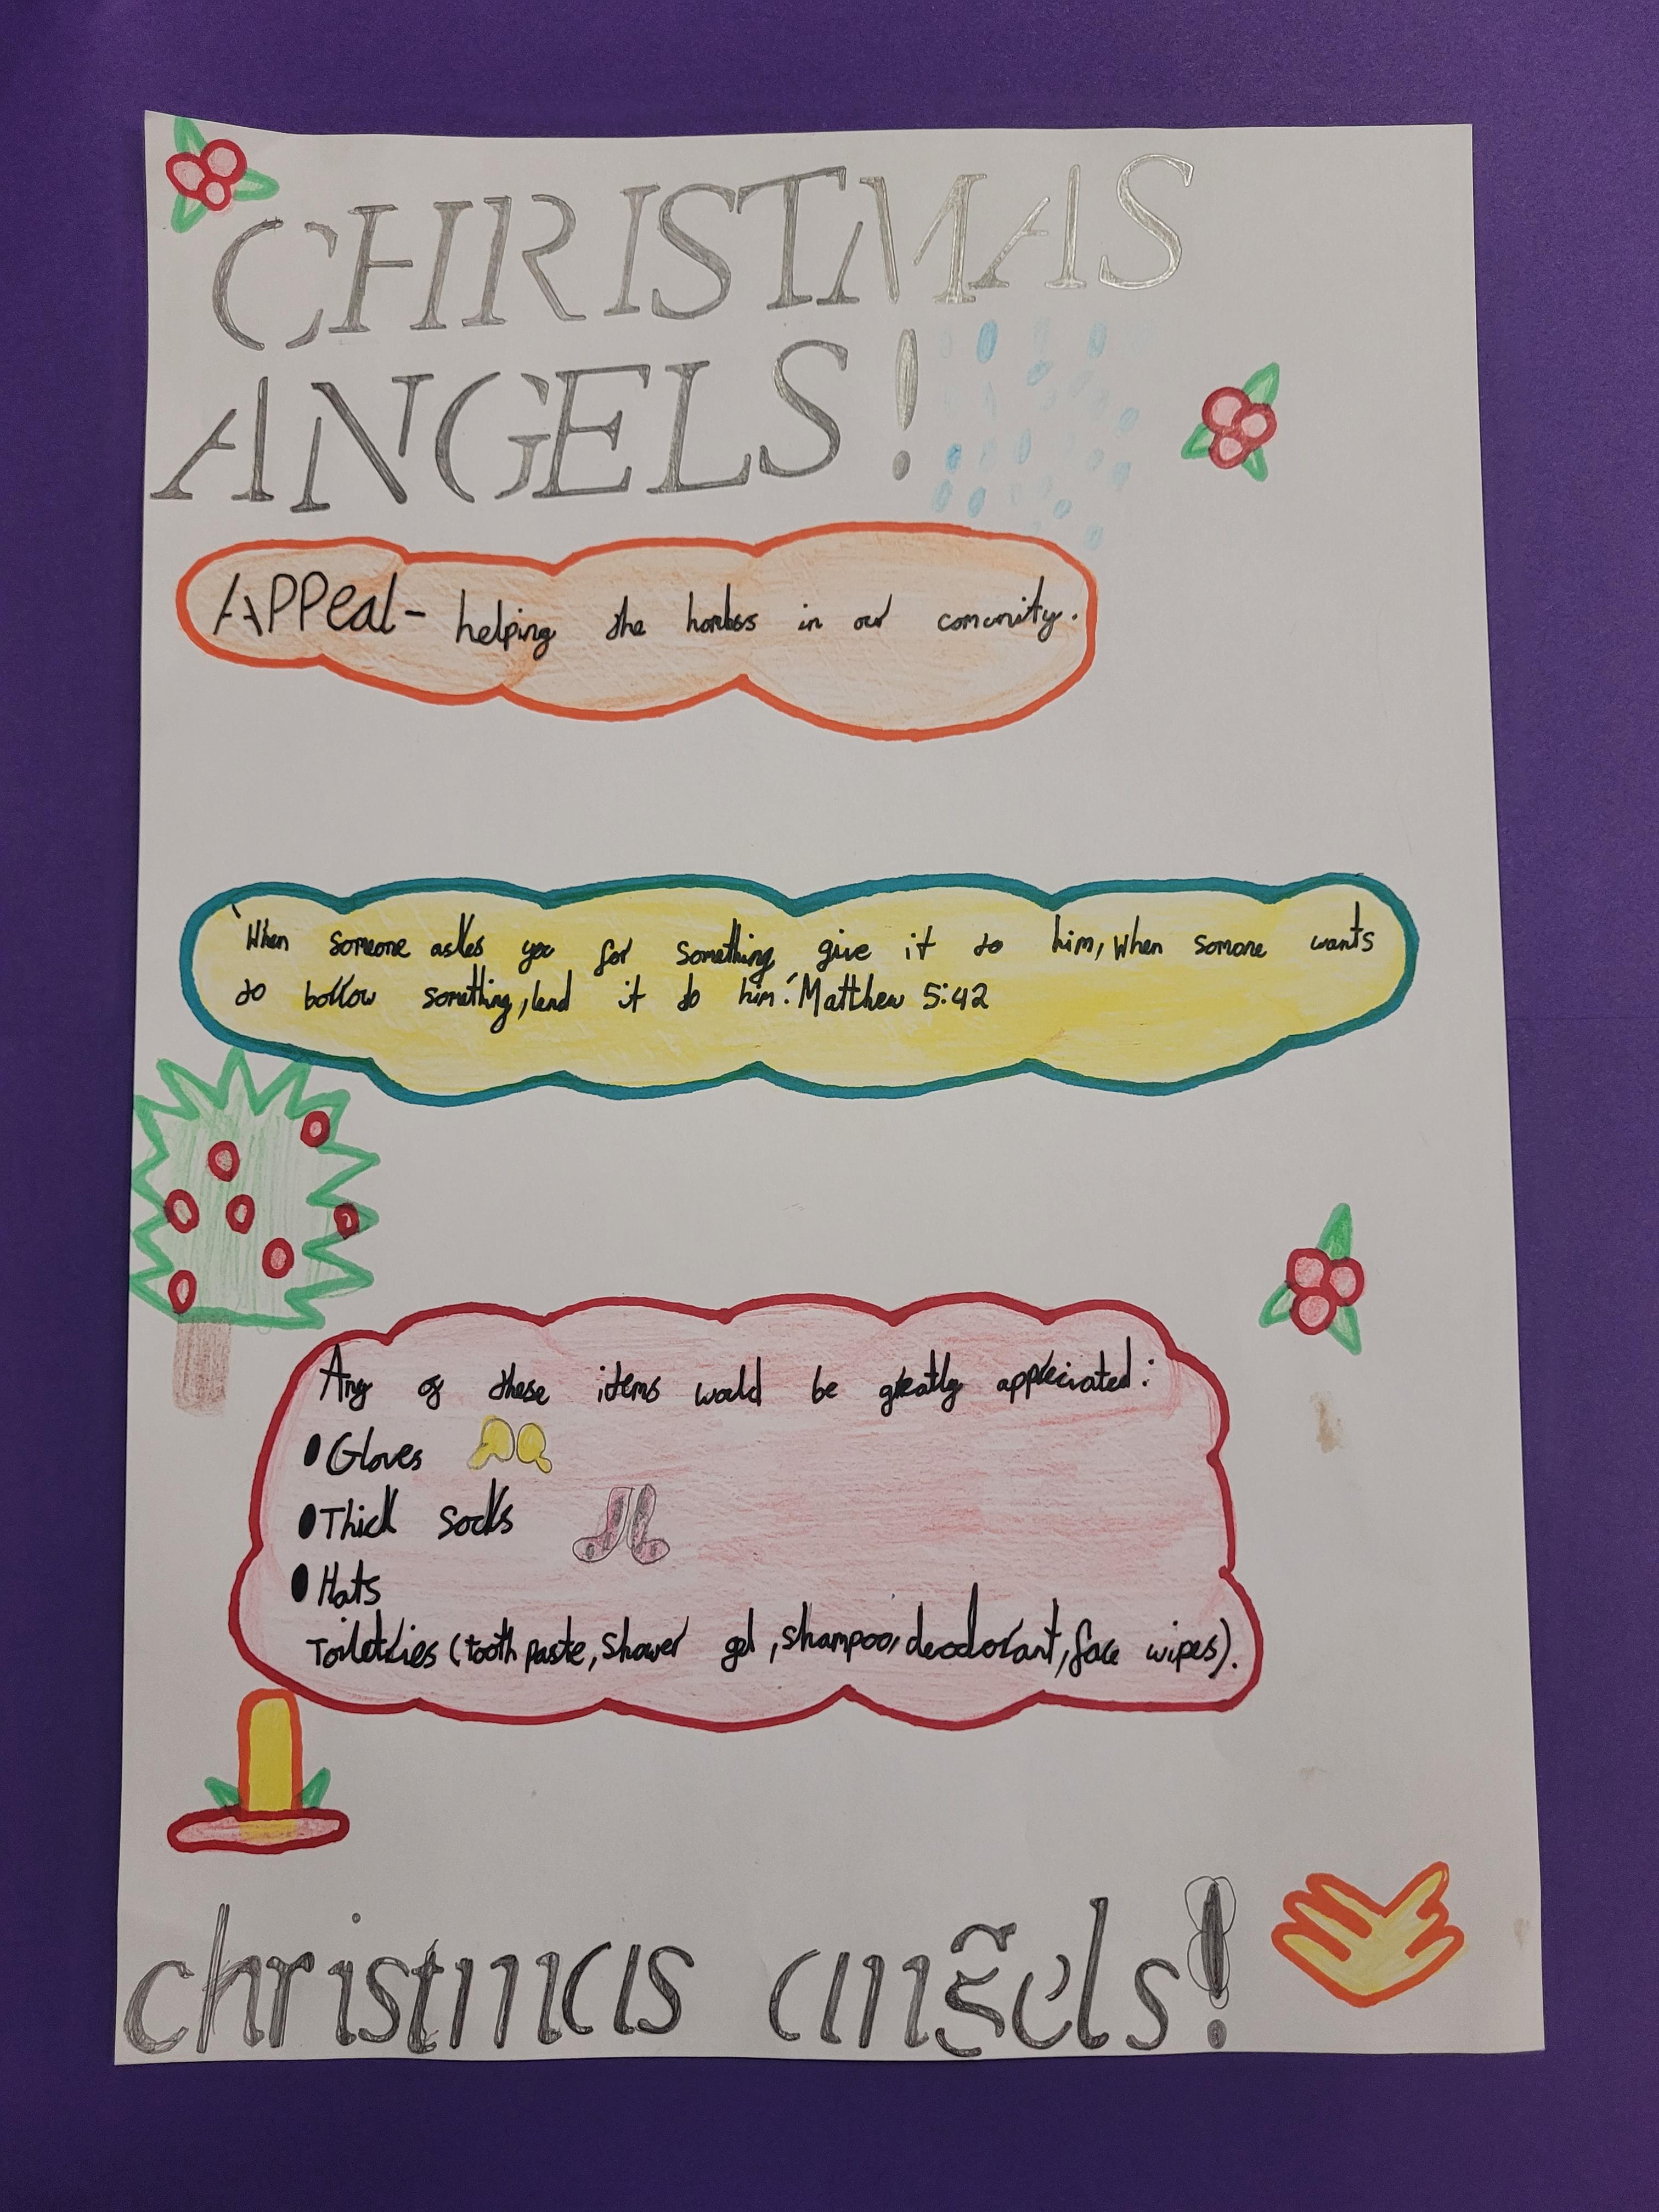 CHRISTMAS
ANGELS!
Appeal- helping the homless in our comunity.
'When someone askes you for something give it to him, When somone wants
to borrow something, lend it to him.' Matthew 5:42
Any of these items would be greatly appreciated:
• Gloves
• Thick Socks
• Hats
Toiletries (tooth paste, Shower gel, shampoo, deodorant, face wipes).
christmas angels!